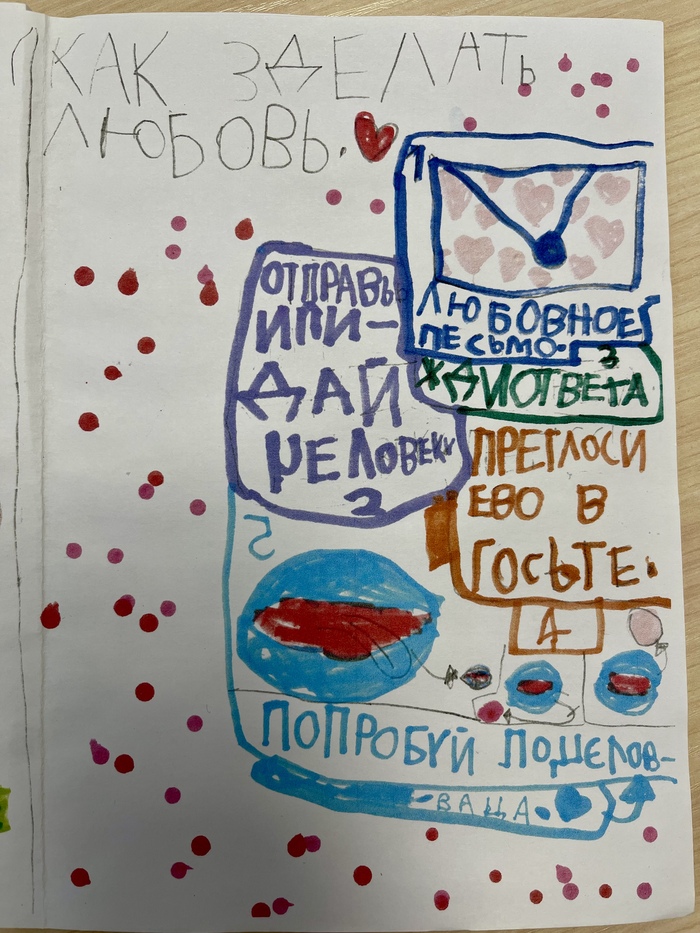 КАК ЗДЕЛАТЬ
ЛЮБОВЬ.
1
ЛЮБОВНОЕ
ПЕСЬМО.
ОТПРАВЬ
ИЛИ-
ДАЙ
ЧЕЛОВЕКУ
2
3
ЖДИ ОТВЕТА
ПРЕГЛОСИ
ЕВО В
ГОСЬТЕ.
4
5
ПОПРОБУЙ ПОЦЕЛОВ-
-ВАЦА.